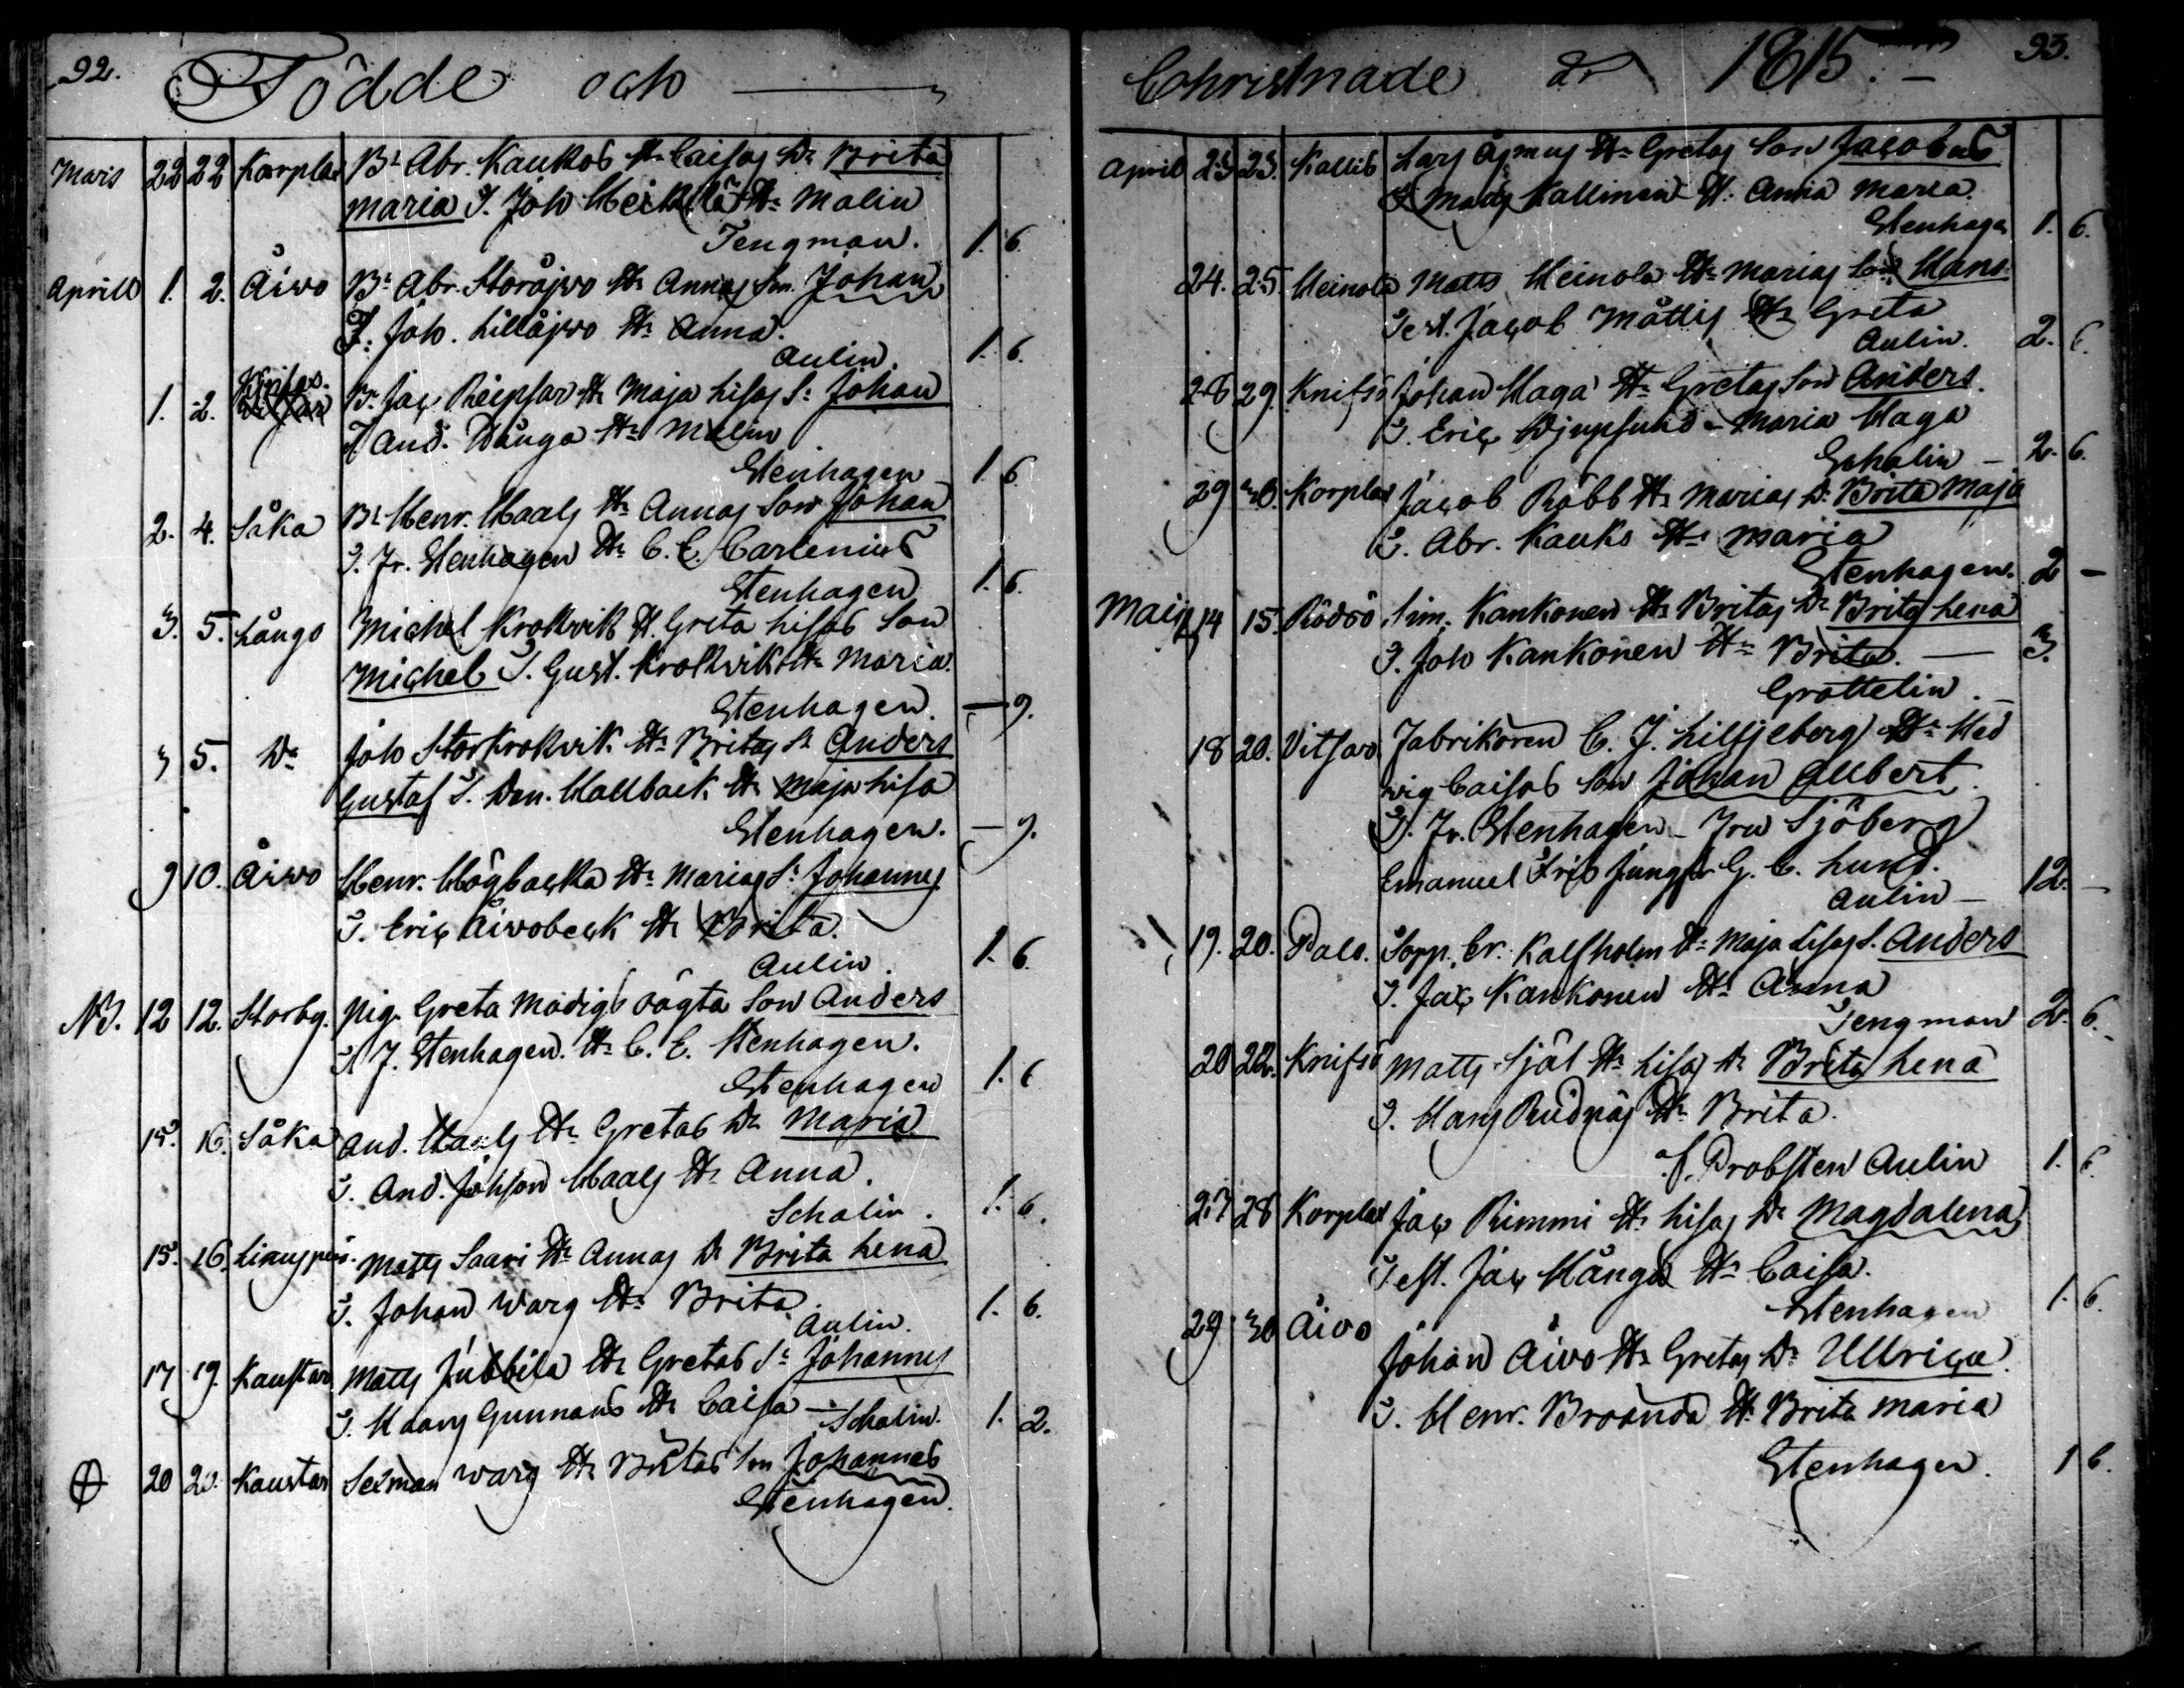 92.
Födde och
Maris 22 22 Korplax Bd. Abr. Kaukos H. Caisas Dr Brita
Maria T. Joh Heikkilä Hu Malin
Tengman. 1. 6.
Aprill 1. 2. Åivo Bd. Abr. Storåjvo Hu Annas Son Johan
T. Joh. Lillåjvo Hu Anna.
Aulin. 1. 6.
1. 2. Knifsö. Bd. Jac Reipsar Hu Maja Lisas S. Johan
T And. Dånga Hu Malin
Stenhagen 1. 6
2. 4. Såka Bd Henr. Haals Hu Annas Son Johan
T. Fr. Stenhagen Hu C. E. Carlenius
Stenhagen 1. 6.
3. 5. Långö Michel Krokvik H. Greta Lisas Son
Michel T. Gust. Krokvik Hu Maria.
Stenhagen. — 9.
3 5. Do Joh Storkrokvik Hu Britas S. Anders
Gustaf T. Dan. Hallback Hu Maja Lisa
Stenhagen. — 9.
9 10. Åivo Henr. Högbacka Hu Marias S. Johannes
T. Eric Åivobeck Hu Brita.
Aulin. 1. 6.
NB. 12 12. Storby. Pig. Greta Modigs oägta Son Anders
T J. Stenhagen. Hu C. E. Stenhagen.
Stenhagen 1. 6
15. 16. Såka And. Haals Hu Gretas Dr Maria
T. And. Johson Haals Hu Anna.
Schalin. 1. 6.
15. 16. Matts Saari Hu Annas Dr Brita Lena
T. Johan Warg Hu Brita.
Aulin. 1. 6.
17 19. Kaustar Matts Jubbila Hu Gretas S. Johannes
T. Hans Gunnars Hu Caisa —
Schalin. 1. 2.
20 20. Kaustar Selman Warg Hu Britas Son Johannes
Stenhagen.
Christnade år 1815. — 93.
April 23 23. Kallis Lars Åsmus Hu Gretas Son Jacobus
T Matts Kallinen H. Anna Maria.
Stenhagen 1. 6.
24. 25. Heinola Matts Heinola Hu Marias Son Hans
Test. Jacob Måttis Hu Greta
Aulin. 2. 6.
28 29. Knifsö Johan Haga Hu Gretas Son Anders.
T. Eric Djupsund — Maria Haga
Schalin — 2. 6.
29 30. Korplax Jacob Röbb Hu Marias Dr Brita Maja
T. Abr. Kauko Hu Maria
Stenhagen. 2 —
Maij 14 15. Rödsö Sim. Kankonen Hu Britas Dr Brita Lena
T. Joh Kankonen Hu Brita. — 3.
Grottelin.
18 20. Vitsar Fabrikören C. J. Lilljeberg Hu Hed
vig Caisas Son Johan Albert.
T. Fr. Stenhagen — Fru Sjöberg
Emanuel Jungfr G. C. Lund.
Aulin — 12. —
19. 20. Palo. Sopp. Er. Kalfholm Hu Maja Lisas S. Anders
T. Jac Kankonen Hu Anna
Tengman 2. 6.
20 22. Knifsö Matts Själ Hu Lisas Dr Brita Lena
T. Hans Rudnäs Hu Brita.
af Probsten Aulin 1. 6.
27 28 Korplax Jac Rimmi Hu Lisas Dr Magdalena
Test. Jac Hånga Hu Caisa.
Stenhagen 1. 6.
29 30 Åivo Johan Åivo Hu Gretas Dr Ullrica.
T. Henr. Broända Hu Brita Maria
Stenhagen. 1 6.